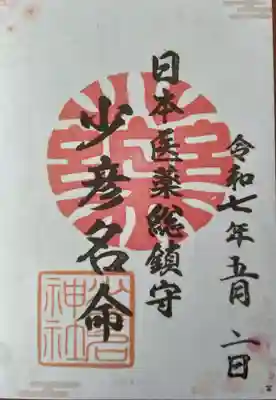 令和七年五月二日
日本医薬総鎮守
少彦名命
神社